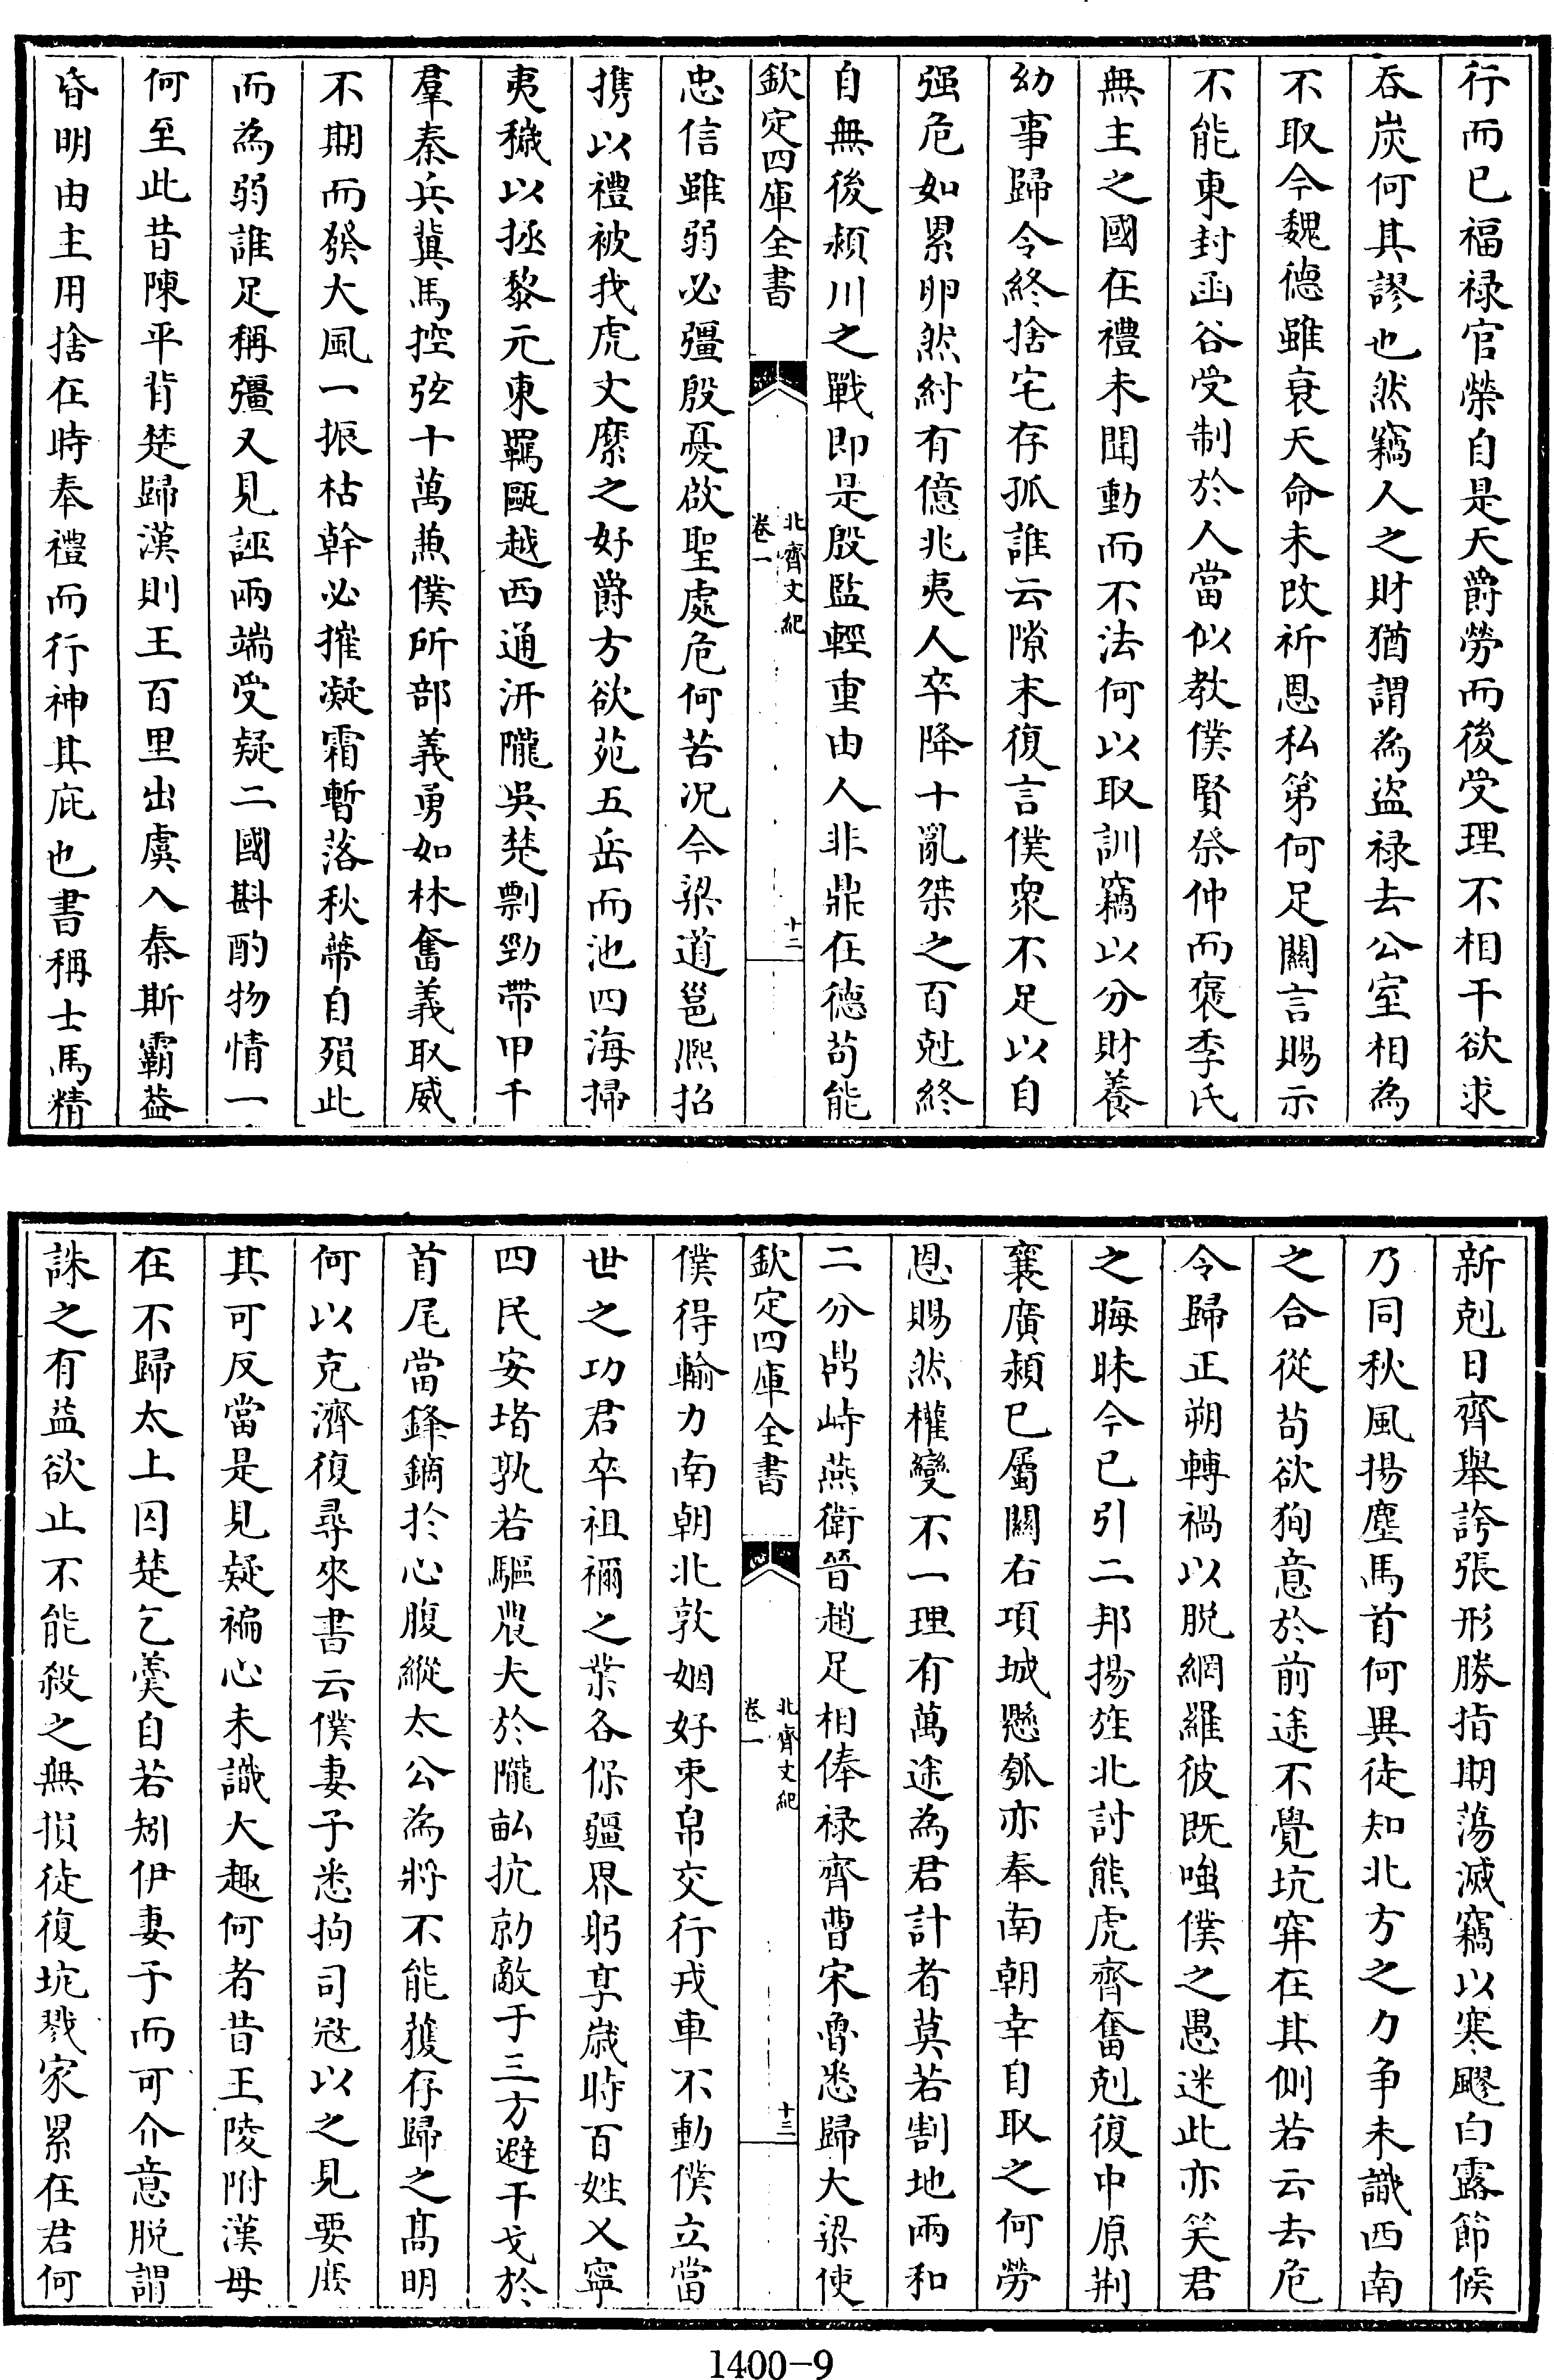 行而已福禄官榮自是天爵勞而後受理不相干欲求
吞炭何其謬也然竊人之財猶謂為盜禄去公室相為
不取今魏德雖衰天命未改祈恩私第何足關言賜示
不能東封函谷受制於人當似教僕賢祭仲而褒季氏
無主之國在禮未聞動而不法何以取訓竊以分財養
幼事歸令終捨宅存孤誰云隙末復言僕衆不足以自
强危如累卵然紂有億兆夷人卒降十亂桀之百尅終
自無後潁川之戰即是殷監輕重由人非鼎在德苟能
欽定四庫全書
北齊文紀
卷一
十二
忠信雖弱必彊殷憂啟聖處危何苦况今梁道邕熙招
攜以禮被我虎文縻之好爵方欲苑五岳而池四海掃
夷穢以拯黎元東羈甌越西通汧隴吳楚剽勁帶甲千
羣秦兵冀馬控弦十萬兼僕所部義勇如林奮義取威
不期而發大風一振枯幹必摧凝霜暫落秋蔕自殞此
而為弱誰足稱彊又見誣兩端受疑二國斟酌物情一
何至此昔陳平背楚歸漢則王百里出虞入秦斯霸蓋
昏明由主用捨在時奉禮而行神其庇也書稱士馬精
新剋日齊舉誇張形勝指期蕩滅竊以寒飂白露節候
乃同秋風揚塵馬首何異徒知北方之力爭未識西南
之合從苟欲狥意於前途不覺坑穽在其側若云去危
令歸正朔轉禍以脱網羅彼既嗤僕之愚迷此亦笑君
之晦昧今已引二邦揚旌北討熊虎齊奮剋復中原荆
襄廣潁已屬關右項城懸瓠亦奉南朝幸自取之何勞
恩賜然權變不一理有萬途為君計者莫若割地兩和
二分鼎峙燕衛晉趙足相俸禄齊曹宋魯悉歸大梁使
欽定四庫全書
北齊文紀
卷一
十三
僕得輸力南朝北敦姻好束帛交行戎車不動僕立當
世之功君卒祖禰之業各保疆界躬享嵗時百姓乂寧
四民安堵孰若驅農夫於隴畝抗勍敵于三方避干戈於
首尾當鋒鏑於心腹縱太公為將不能獲存歸之髙明
何以克濟復尋來書云僕妻子悉拘司冦以之見要庶
其可反當是見疑褊心未識大趣何者昔王陵附漢母
在不歸太上囚楚乞羮自若矧伊妻子而可介意脱謂
誅之有益欲止不能殺之無損徒復坑戮家累在君何
1400-9